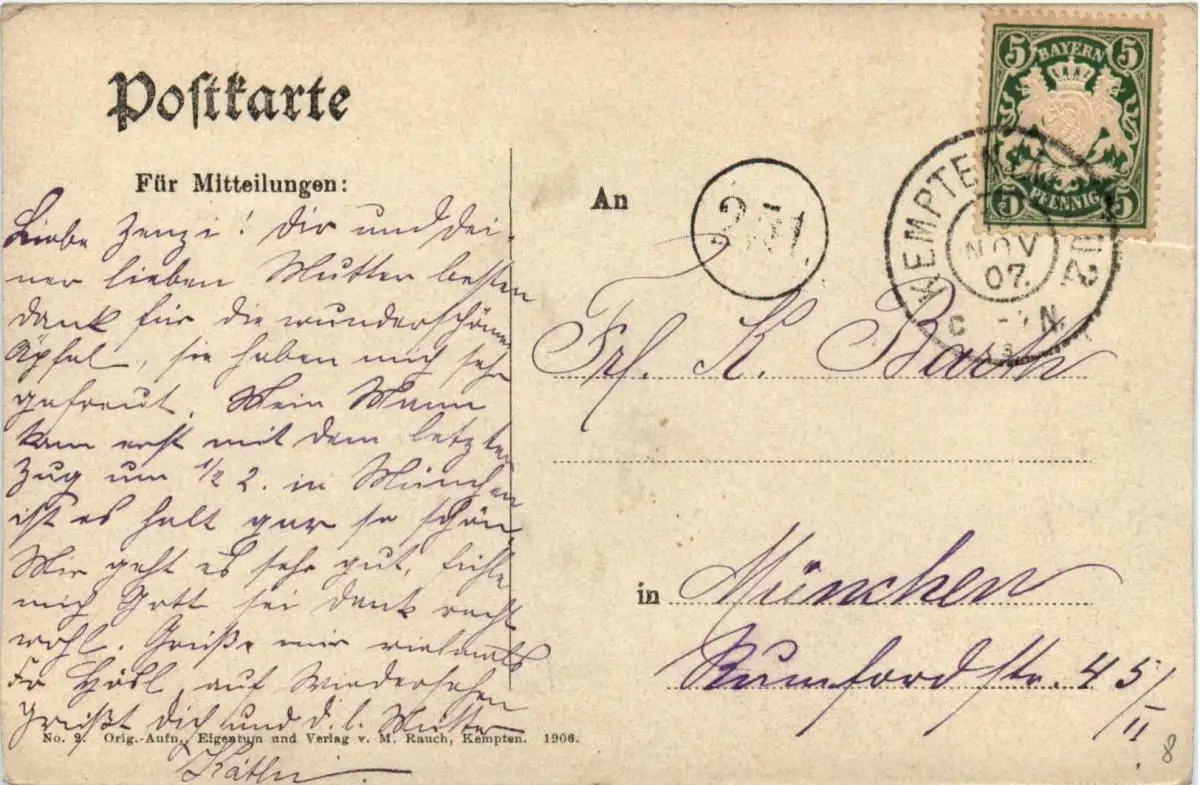 Postkarte
Für Mitteilungen:
Liebe Zenzi! Dir und dei-
ner lieben Mutter besten
Dank für die wunderschönen
Äpfel, sie haben mich sehr
gefreut. Mein Mann
kam erst mit dem letzten
Zug um 1/2 2. in München
ist es halt gar so schön.
Mir geht es sehr gut, fühle
mich Gott sei dank recht
wohl. Grüße mir vielmals
Fr Hösl, auf Wiedersehen
grüßt Dich und d. l. Mutter
Käthi
No. 2. Orig.-Aufn., Eigentum und Verlag v. M. Rauch, Kempten. 1906.
An
Frl. K. Barth
in München
Rumfordstr. 45/II
8
5 BAYERN 5
5 PFENNIG 5
KEMPTEN
NOV
07.